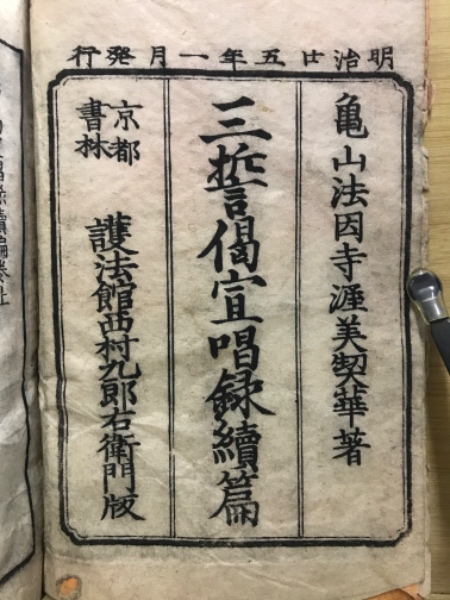 明治廿五年一月発行
亀山法因寺渥美契華著
三誓偈宣唱録續篇
京都
書林
護法館西村九郎右衛門版